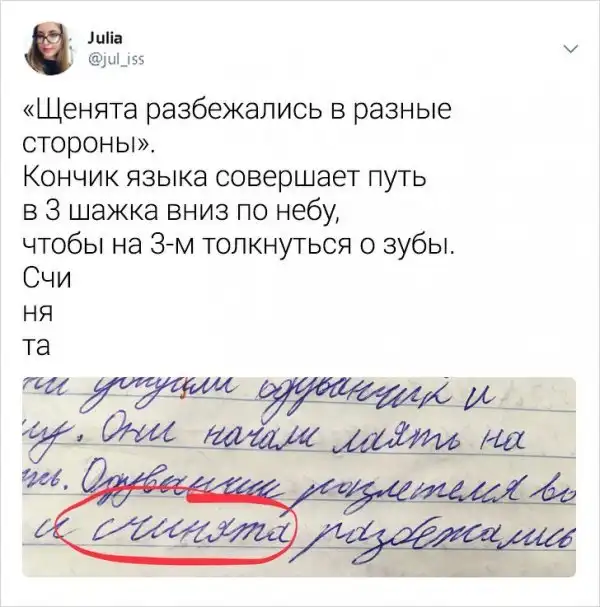 Julia
@jul_iss
«Щенята разбежались в разные
стороны».
Кончик языка совершает путь
в 3 шажка вниз по небу,
чтобы на 3-м толкнуться о зубы.
Счи
ня
та
одуванчик и
Они начали лаять на
Одуванчик разлетелся во
и счинята разбежались